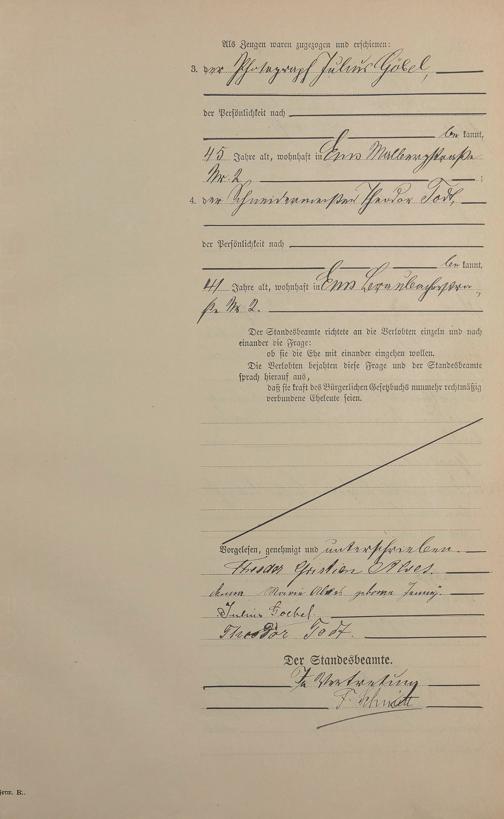 Als Zeugen waren zugezogen und erschienen:
3. der Photograph Julius Göbel,
der Persönlichkeit nach
be kannt,
45 Jahre alt, wohnhaft in Ems Malbergstraße
Nr. 2 ;
4. der Schneidermeister Theodor Todt,
der Persönlichkeit nach
be kannt,
41 Jahre alt, wohnhaft in Ems
ße Nr. 2.
Der Standesbeamte richtete an die Verlobten einzeln und nach
einander die Frage:
ob sie die Ehe mit einander eingehen wollen.
Die Verlobten bejahten diese Frage und der Standesbeamte
sprach hierauf aus,
daß sie kraft des Bürgerlichen Gesetzbuchs nunmehr rechtmäßig
verbundene Eheleute seien.
Vorgelesen, genehmigt und unterschrieben.
Theodor Christian
Marie geborne
Julius Goebel
Theodor Todt.
Der Standesbeamte.
In Vertretung
F. Schmitt
B.